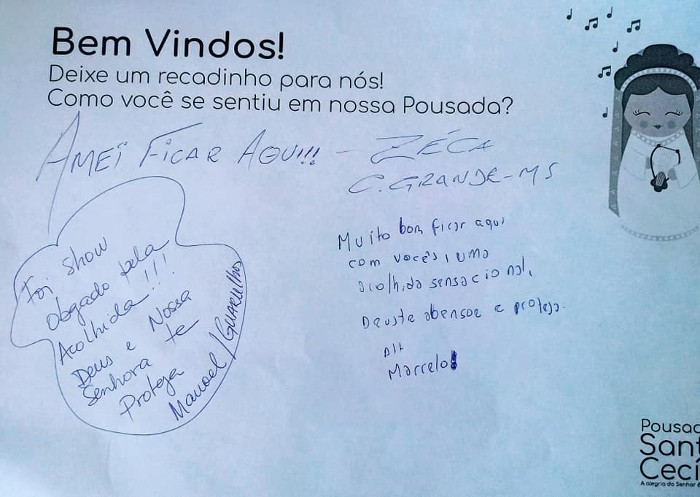 Bem Vindos!
Deixe um recadinho para nós!
Como você se sentiu em nossa Pousada?
AMEI FICAR AQUI!!! - ZÉCA
C. GRANDE-MS
Foi show
obgado pela
Acolhida!!!
Deus e Nossa
Senhora te
Proteja
Manoel / Guarulhos
Muito bom ficar aqui
com vocês, uma
acolhida sensacional,
Deuste abensoe e proteja.
Att
Marcelo
Pousad
Sant
Cecí
A alegria do Senhor é